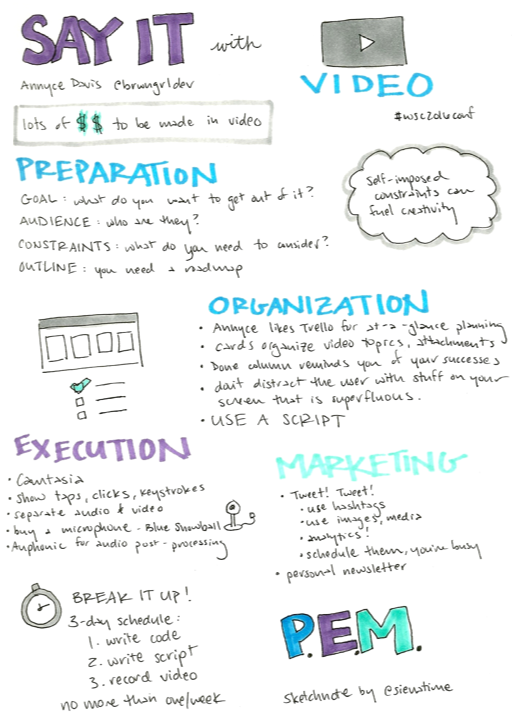 SAY IT with
VIDEO
Annyce Davis @brwngrldev
#wsc2016conf
lots of $$ to be made in video
PREPARATION
GOAL: what do you want to get out of it?
AUDIENCE: who are they?
CONSTRAINTS: what do you need to consider?
OUTLINE: you need a roadmap
Self-imposed
constraints can
fuel creativity
ORGANIZATION
• Annyce likes Trello for at-a-glance planning
• cards organize video topics, attachments
• Done column reminds you of your successes
• don't distract the user with stuff on your
screen that is superfluous.
• USE A SCRIPT
EXECUTION
• Camtasia
• show taps, clicks, keystrokes
• separate audio & video
• buy a microphone - Blue Snowball
• Auphonic for audio post-processing
MARKETING
• Tweet! Tweet!
• use hashtags
• use images, media
• analytics!
• schedule them, you're busy
• personal newsletter
BREAK IT UP!
3-day schedule:
1. write code
2. write script
3. record video
no more than one/week
P.E.M.
sketchnote by